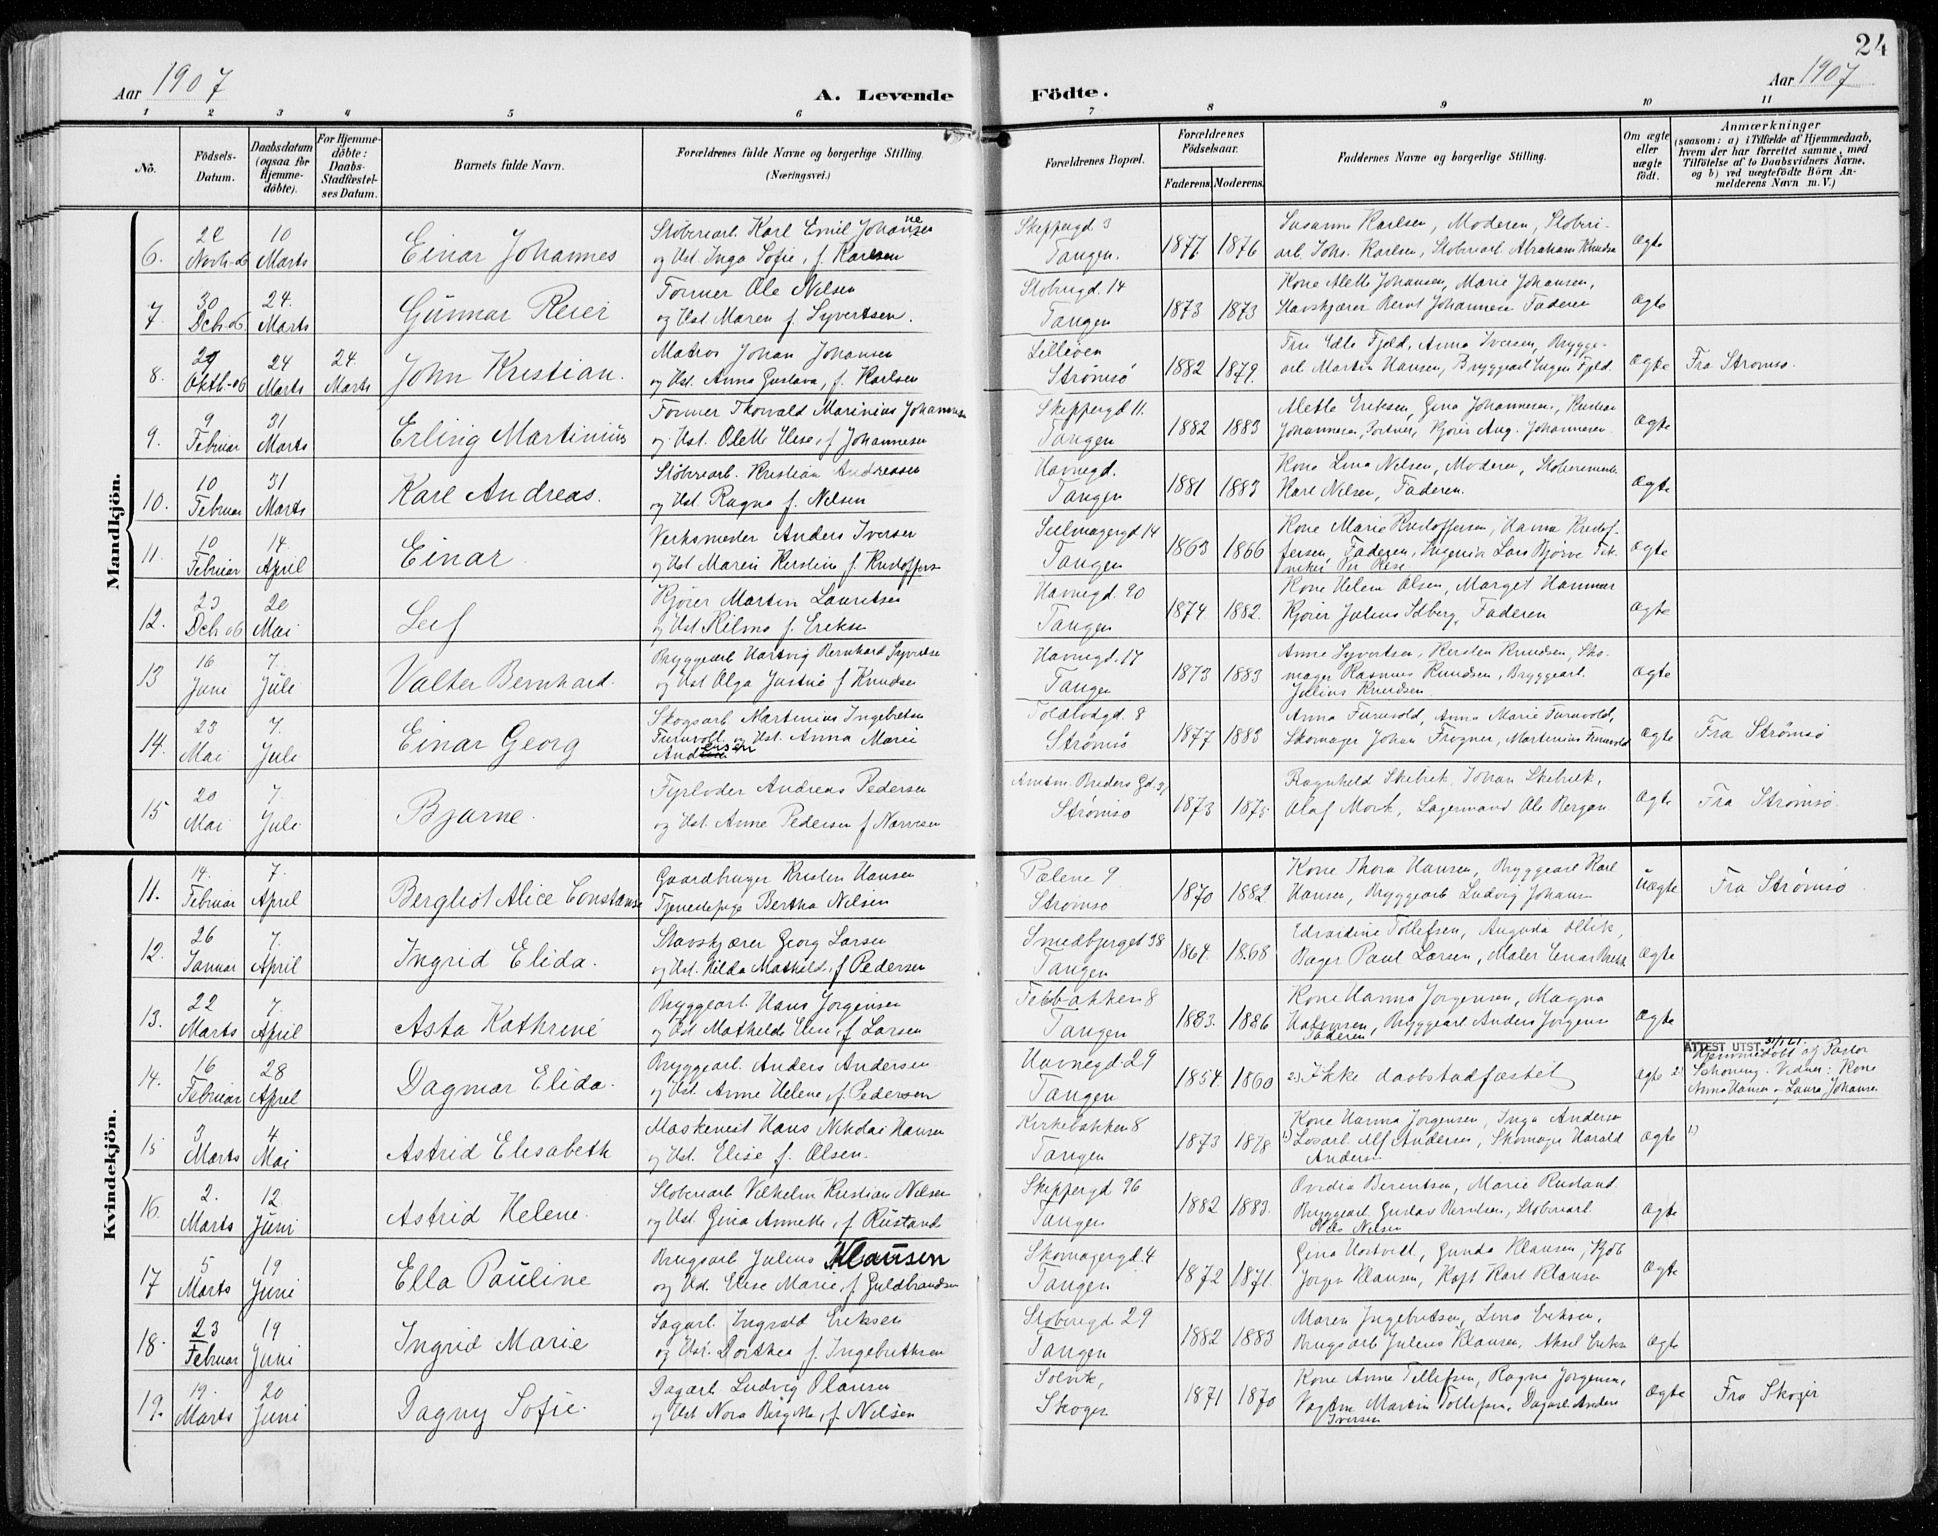 24
Aar 1907
A. Levende Födte.
Aar 1907
1 2 3 4 5 6 7 8 9 10 11
No.
Födsels-Datum.
Daabsdatum (ogsaa for Hjemmedöbte).
For Hjemmedöbte: Daabs-Stadfæstelses Datum.
Barnets fulde Navn.
Forældrenes fulde Navne og borgerlige Stilling.
(Næringsvei.)
Forældrenes Bopæl.
Forældrenes Födselsaar.
Faderens. Moderens.
Faddernes Navne og borgerlige Stilling.
Om ægte eller uægte födt.
Anmærkninger
(saasom: a) i Tilfælde af Hjemmedaab, hvem der har forrettet samme, med Tilföielse af to Daabsvidners Navne, og b) ved uægtefödte Börn Anmelderens Navn m. V.)
Mandkjön.
6. Novb-06 10 Marts Einar Johannes Støberiarb. Karl Emil Johannesen
og Hst. Inga Sofie, f. Karlsen
Skippergd 3 Tangen. 1877. 1876 Susanna Karlsen, Moderen, Støberi-
arb. Johs. Karlsen, Støberiarb Abraham Knudsen Ægte
7. 30 Dcb 06. 24. Marts Gunnar Reier Former Ole Nilsen
og Hst Maren f. Syvertsen.
Støberigd. 14 Tangen 1873 1873 Kone Alette Johansen, Marie Johansen,
Havskjærer Bernt Johannesen Faderen Ægte
8. Oktb-06 24 Marts 24. Marts John Kristian. Matros Johan Johansen
og Hst. Anna Gustava, f. Karlsen
Lilleøen Strømsø 1882 1879. Fru Edle Fjeld, Anna Iversen, Brygge-
arb Martin Hansen, Bryggearb Ingen Fjeld. Ægte Fra Strømsø.
9. 9 Februar 31 Marts Erling Martinius Former Thorvald Marinius Johannesen
og Hst. Olette Elise, f Johannesen
Skippergd 11. Tangen 1882 1883 Alette Eriksen, Gina Johannesen, Kristian
Johannesen, Portner, Kjører Aug. Johannesen. Ægte
10. 10 Februar 31 Marts Karl Andreas. Støberiarb. Kristian Andreasen
og Hst Ragna f. Nilsen
Havnegd. Tangen 1881 1883 Kone Lina Nilsen, Moderen, Støberimester
Karl Nilsen, Faderen. Ægte
11. 10 Februar 14 April Einar Verksmester Anders Iversen
og Hst Maren Kirstine f. Kristoffersen
Seilmagergd 14 Tangen 1863 1866 Kone Marie Kristoffersen, Hanna Kristof-
fersen, Faderen, Ingeniør Lars Bjørve Tek-
niker Per Rese Ægte
12. 23 Dcb 06 20 Mai Leif Kjører Martin Lauritsen
og Hst Kilma f. Eriksen
Havnegd. 90 Tangen 1874. 1882. Kone Helene Olsen, Marget Hammer
Kjører Julius Solberg, Faderen Ægte
13 16 Juni 7. Juli Valter Bernhard. Bryggearb Hartvig Bernhard Syvertsen
og Hst Olga Justine f Knudsen
Havnegd. 17 Tangen 1873 1883 Anne Syvertsen, Kirsten Knudsen, Sko-
mager Rasmus Knudsen, Bryggearb.
Julius Knudsen Ægte
14. 23 Mai 7. Juli Einar Georg Skogsarb Martinius Ingebretsen
Furuvoll. og Hst. Anna Marie
Andersen
Toldbodgd. 8 Strømsø 1877 1883 Anna Furuvold, Anna Marie Furuvold,
Skomager Johan Frogner, Martinius Furuvold Ægte Fra Strømsø
15 20 Mai 7. Juli Bjarne. Fyrbøder Andreas Pedersen
og Hst. Anne Pedersen f Narvesen
Amtm. Breders Gd. Strømsø 1873 1875 Ragnhild Skibrek, Johan Skibrek,
Olaf Mork, Lagermand Ole Bergan Ægte Fra Strømsø.
Kvindekjön.
11. 14. Februar 7. April Bergliot Alice Constanse Gaardbruger Kristen Hansen
Tjenestepige Bertha Nilsen
Pælene 9 Strømsø 1870 1882 Kone Thora Hansen, Bryggearb Karl
Hansen, Bryggearb Ludvig Johansen Uægte Fra Strømsø.
12. 26 Januar 7. April Ingrid Elida. Stavskjærer Georg Larsen
og Hst. Hilda Mathilde, f Pedersen
Smedbjerget 38 Tangen 1864. 1868 Edvardine Tollefsen, Augusta
Bager Paul Larsen, Maler Einar Ægte
13. 22 Marts 7. April Asta Kathrine Bryggearb. Hans Jørgensen
og Hst Mathilde Elise, f Larsen
Tangen 1883. 1886 Kone Hanna Jørgensen, Magna
Halvorsen, Bryggearb Anders Jørgensen
Faderen Ægte
14. 16 Februar 28 April Dagmar Elida. Bryggearb. Anders Andersen
og Hst. Anne Helene, f. Pedersen
Havnegd 29 Tangen 1854 1860 2) Ikke daabstadfæstet Ægte 2) ATTEST UTST.
Hjemmedøbt af Pastor
Schøning. Vidner: Kone
Anna Hansen og Laura Johansen
15 3 Marts 4. Mai Astrid Elisabeth Maskinist Hans Nikolai Hansen
og Hst. Elise f. Olsen.
Kirkebakken 8 Tangen 1873 1878 Kone Hanna Jørgensen, Inga Andersen
1) Losarb Alf Andersen, Skomager Harald
Andersen Ægte 1)
16. 2. Marts 12. Juni Astrid Helene. Støberiarb Vilhelm Kristian Nilsen
og Hst. Gina Annette, f Rustand
Skippergd 96 Tangen 1882 1883. Ovidia Berentsen, Marie Rustand
Bryggearb Gustav Berntsen, Støberiarb
Nils Nilsen Ægte
17 5 Marts 19 Juni Ella Pauline Brugsarb Julius Klausen
og Hst. Elise Marie, f. Guldbrandsen
Skomagergd. 4 Tangen 1872 1871. Gina Hostvedt, Gunda Klausen, Kjøb
Jørgen Klausen, Kapt Karl Klausen Ægte
18. 23 Februar 19 Juni Ingrid Marie Sagarb. Ingvald Eriksen
og Hst. Dorthea f. Ingebrethsen
Støberigd 29 Tangen 1882 1883 Maren Ingebretsen, Lina Eriksen,
Brugsarb Julius Klausen, Aksel Eriksen Ægte
19. 19. Marts 20 Juni Dagny Sofie. Dagarb Ludvig Olausen
og Hst Nora Birgitte, f. Nilsen
Solvik, Skoger 1871 1870 Kone Anne Tollefsen, Ragna Jørgensen,
Vagtm Martin Tollefsen, Dagarb Anders
Iversen Ægte Fra Skoger